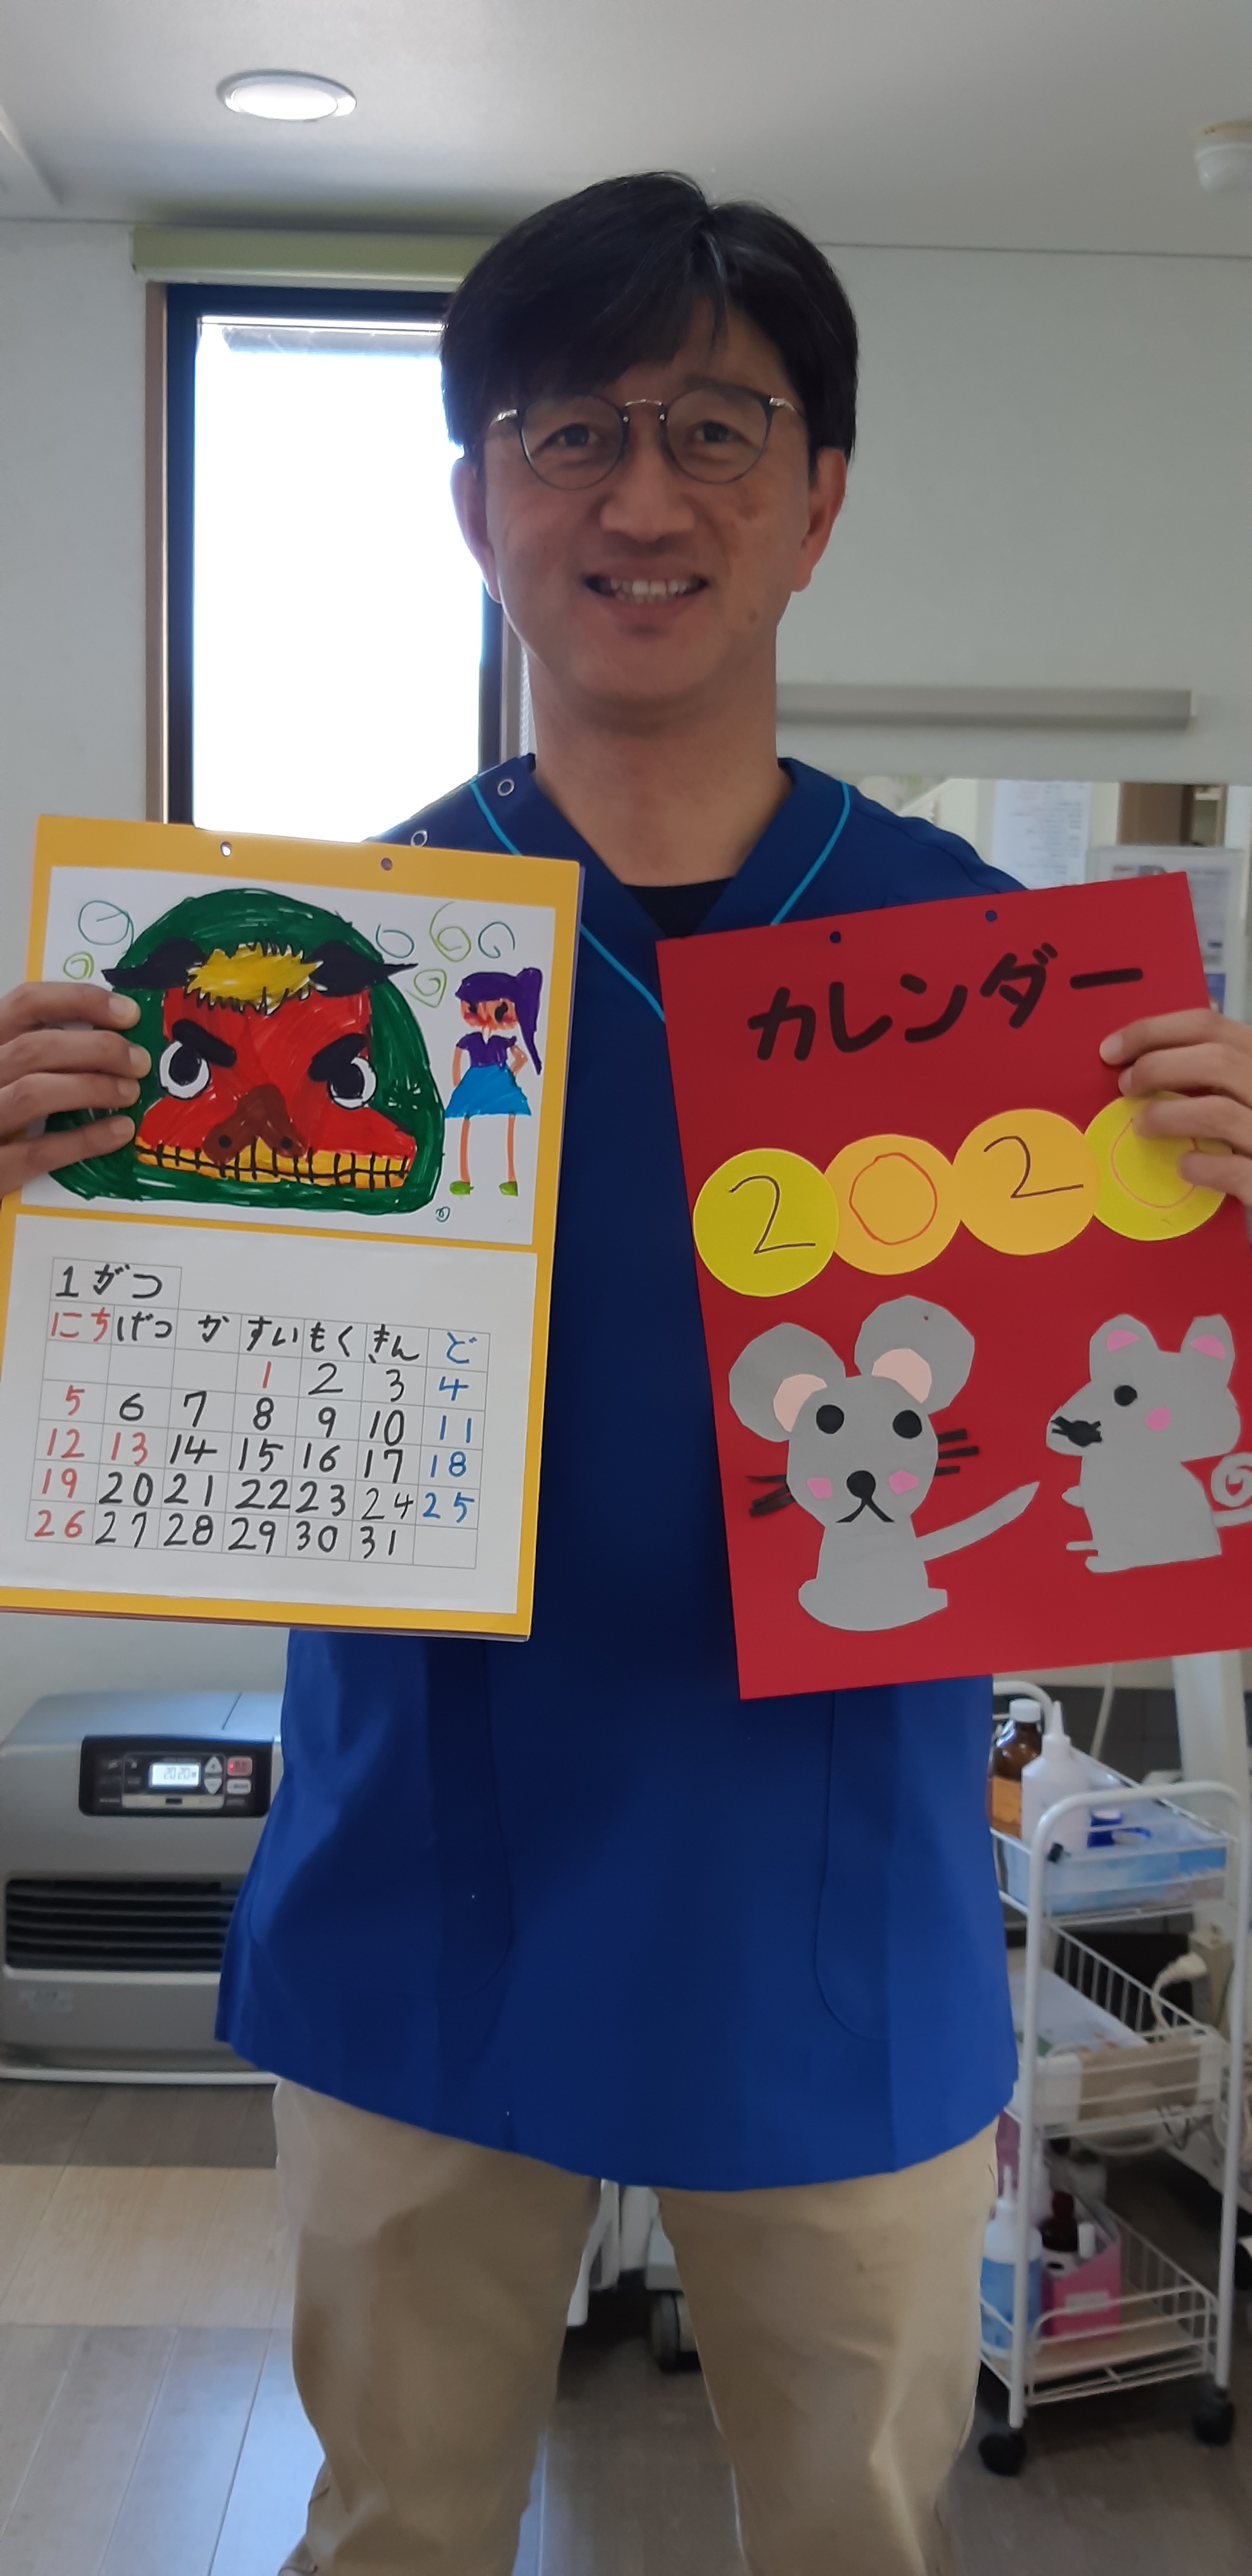 1がつ
にち げつ か すい もく きん ど
1 2 3 4
5 6 7 8 9 10 11
12 13 14 15 16 17 18
19 20 21 22 23 24 25
26 27 28 29 30 31
カレンダー
2020